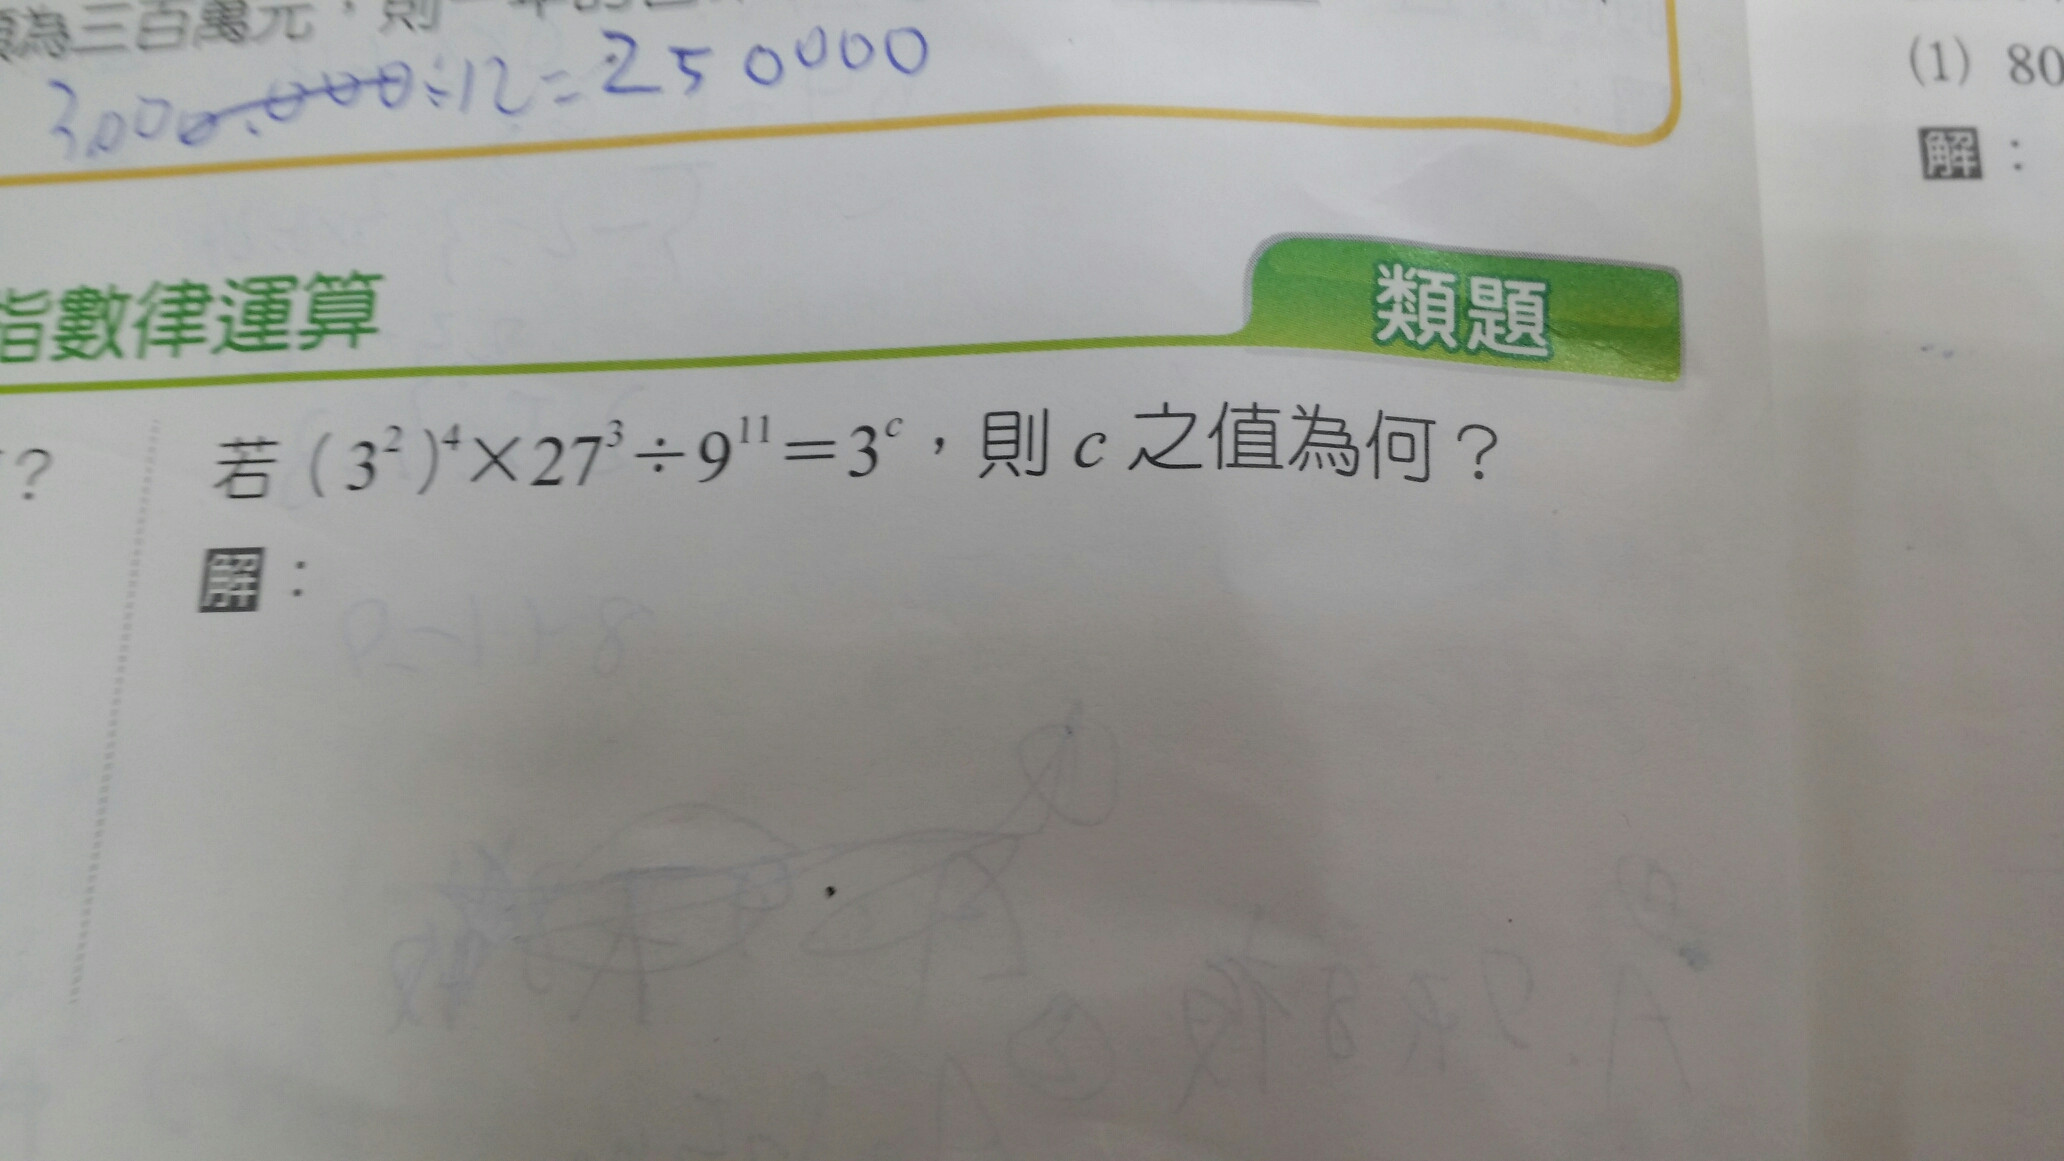 為三百萬元，則一年的
3,000,000,000÷12=250000
(1) 80
解：
指數律運算
類題
？
若 (3²)⁴×27³÷9¹¹=3ᶜ，則 c 之值為何？
解：